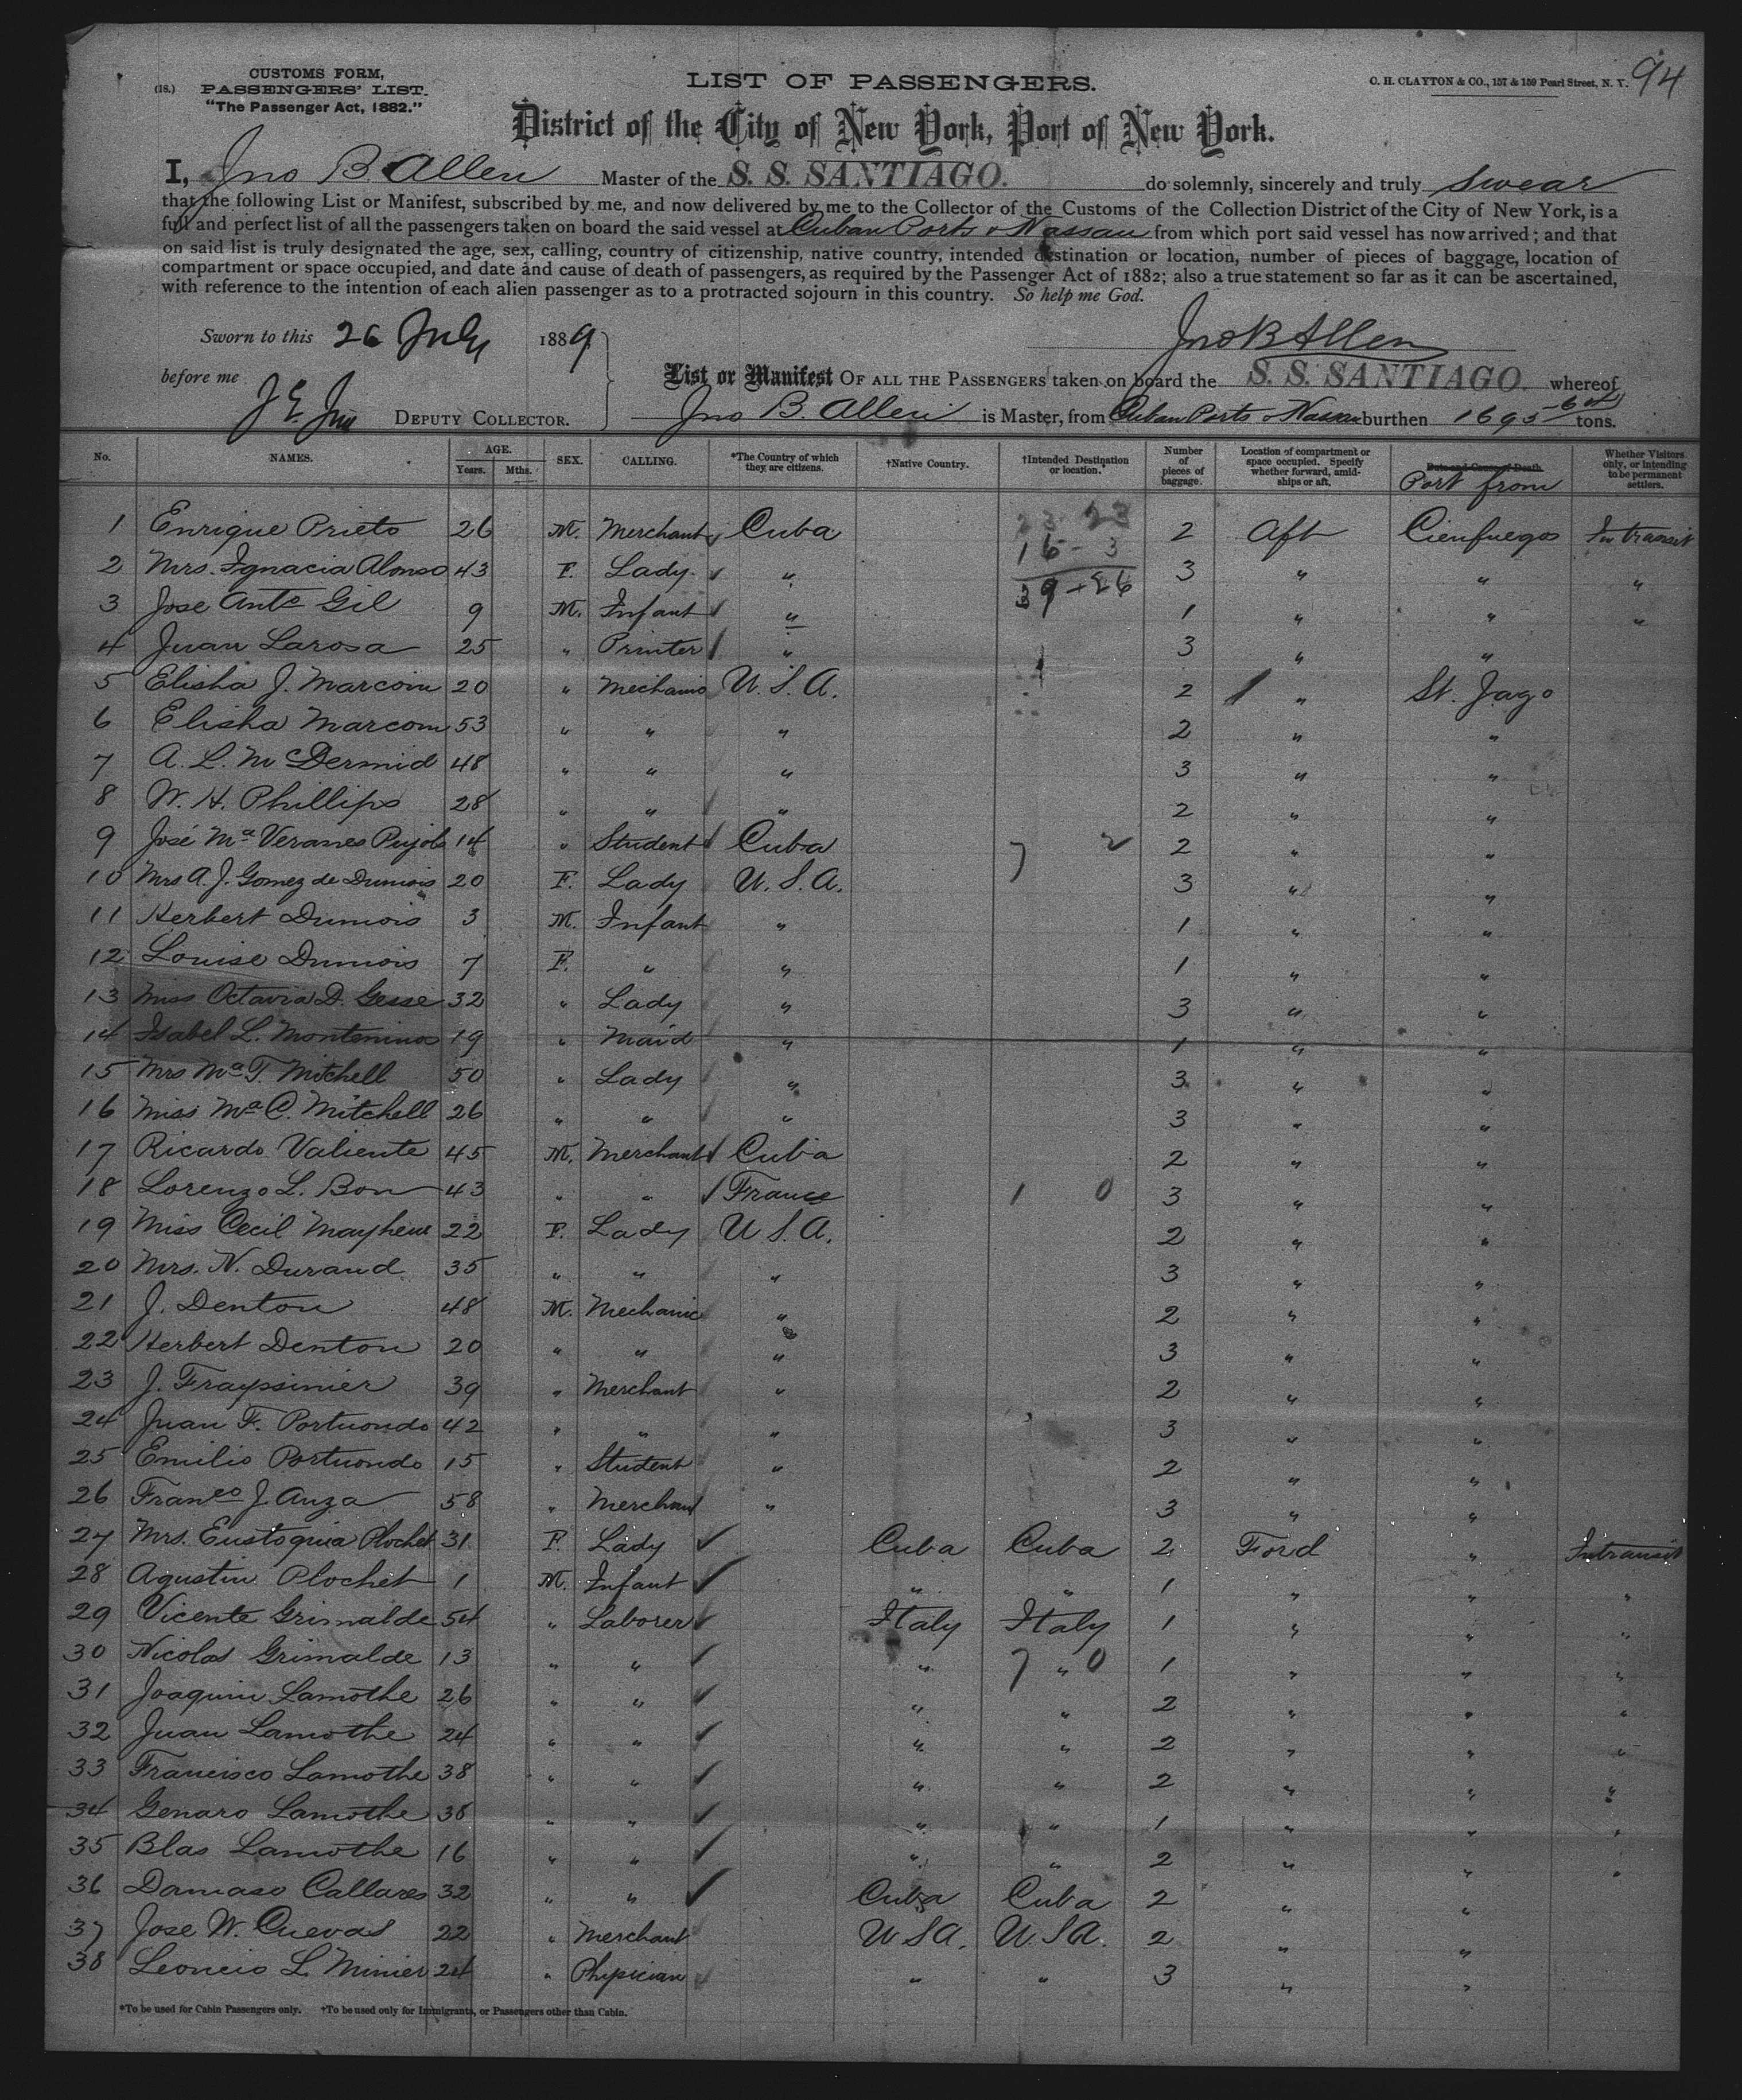 94
CUSTOMS FORM,
(18.) PASSENGERS' LIST.
"The Passenger Act, 1882."
LIST OF PASSENGERS.
C. H. CLAYTON & CO., 157 & 159 Pearl Street, N. Y.
District of the City of New York, Port of New York.
I, Jno B. Allen Master of the S. S. SANTIAGO. do solemnly, sincerely and truly swear
that the following List or Manifest, subscribed by me, and now delivered by me to the Collector of the Customs of the Collection District of the City of New York, is a
full and perfect list of all the passengers taken on board the said vessel at Cuban Ports & Nassau from which port said vessel has now arrived; and that
on said list is truly designated the age, sex, calling, country of citizenship, native country, intended destination or location, number of pieces of baggage, location of
compartment or space occupied, and date and cause of death of passengers, as required by the Passenger Act of 1882; also a true statement so far as it can be ascertained,
with reference to the intention of each alien passenger as to a protracted sojourn in this country. So help me God.
Sworn to this 26 July 1889
Jno B Allen
before me
DEPUTY COLLECTOR.
List or Manifest OF ALL THE PASSENGERS taken on board the S. S. SANTIAGO. whereof
Jno B. Allen is Master, from Cuban Ports & Nassau burthen 1695 tons.
No. NAMES. AGE. Years. Mths. SEX. CALLING. *The Country of which they are citizens. †Native Country. †Intended Destination or location. Number of pieces of baggage. Location of compartment or space occupied. Specify whether forward, amidships or aft. Date and Cause of Death. Port from Whether Visitors only, or intending to be permanent settlers.
1 Enrique Prieto 26 M. Merchant Cuba 2 Aft Cienfuegos In transit
2 Mrs. Ignacia Alonso 43 F. Lady. " 3 " " "
3 Jose Anto Gil 9 M. Infant " 1 " " "
4 Juan Larosa 25 " Printer " 3 " "
5 Elisha J. Marcom 20 " Mechanic U. S. A. 2 " St. Jago
6 Elisha Marcom 53 " " " 2 " "
7 A. L. McDermid 48 " " " 3 " "
8 W. H. Phillips 28 " " " 2 " "
9 José Ma Veranes Pujols 14 " Student Cuba 7 2 2 " "
10 Mrs A. J. Gomez de Dumois 20 F. Lady U. S. A. 3 " "
11 Herbert Dumois 3 M. Infant " 1 " "
12 Louise Dumois 7 F. " " 1 " "
13 Miss Octavia D. Gesse 32 " Lady " 3 " "
14 Isabel L. 19 " Maid " 1 " "
15 Mrs Ma T. Mitchell 50 " Lady " 3 " "
16 Miss Ma C. Mitchell 26 " " " 3 " "
17 Ricardo Valiente 45 M. Merchant Cuba 2 " "
18 Lorenzo L. Bon 43 " " France 1 0 3 " "
19 Miss Cecil Mayhew 22 F. Lady U S. A. 2 " "
20 Mrs. N. Durand 35 " " " 3 " "
21 J. Denton 48 M. Mechanic " 2 " "
22 Herbert Denton 20 " " " 3 " "
23 J. Frayssinier 39 " Merchant " 2 " "
24 Juan F. Portuondo 42 " " " 3 " "
25 Emilio Portuondo 15 " Student " 2 " "
26 Franco J. Auza 58 " Merchant " 3 " "
27 Mrs. Eustoquia Plochet 31 F. Lady Cuba Cuba 2 Ford " Intransit
28 Agustin Plochet 1 M. Infant " " 1 " " "
29 Vicente Grimalde 54 " Laborer Italy Italy 1 " " "
30 Nicolas Grimalde 13 " " " 7 " 0 1 " " "
31 Joaquin Lamothe 26 " " " " 2 " " "
32 Juan Lamothe 24 " " " " 2 " " "
33 Francisco Lamothe 38 " " " " 2 " " "
34 Genaro Lamothe 38 " " " " 1 " " "
35 Blas Lamothe 16 " " " " 2 " " "
36 Damaso Callares 32 " " Cuba Cuba 2 " "
37 Jose W. Cuevas 22 " Merchant U S A. U. S A. 2 " "
38 Leoncio L. Minier 24 " Physician " " 3 " "
*To be used for Cabin Passengers only. †To be used only for Immigrants, or Passengers other than Cabin.